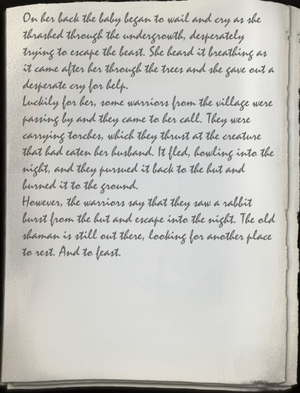 On her back the baby began to wail and cry as she
thrashed through the undergrowth, desperately
trying to escape the beast. She heard it breathing as
it came after her through the trees and she gave out a
desperate cry for help.
Luckily for her, some warriors from the village were
passing by and they came to her call. They were
carrying torches, which they thrust at the creature
that had eaten her husband. It fled, howling into the
night, and they pursued it back to the hut and
burned it to the ground.
However, the warriors say that they saw a rabbit
burst from the hut and escape into the night. The old
shaman is still out there, looking for another place
to rest. And to feast.